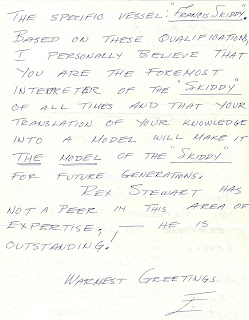 THE SPECIFIC VESSEL: "FRANCIS SKIDDY"
BASED ON THESE QUALIFICATIONS,
I PERSONALLY BELIEVE THAT
YOU ARE THE FOREMOST
INTERPRETER OF THE "SKIDDY"
OF ALL TIMES AND THAT YOUR
TRANSLATION OF YOUR KNOWLEDGE
INTO A MODEL WILL MAKE IT
THE MODEL OF THE "SKIDDY"
FOR FUTURE GENERATIONS.
REX STEWART HAS
NOT A PEER IN THIS AREA OF
EXPERTISE, — HE IS
OUTSTANDING!
WARMEST GREETINGS